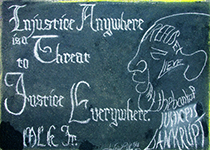 Injustice Anywhere
is a Threat
to
Justice Everywhere.
MLK Jr.
the bank of
JUSTICE IS
BANKRUPT